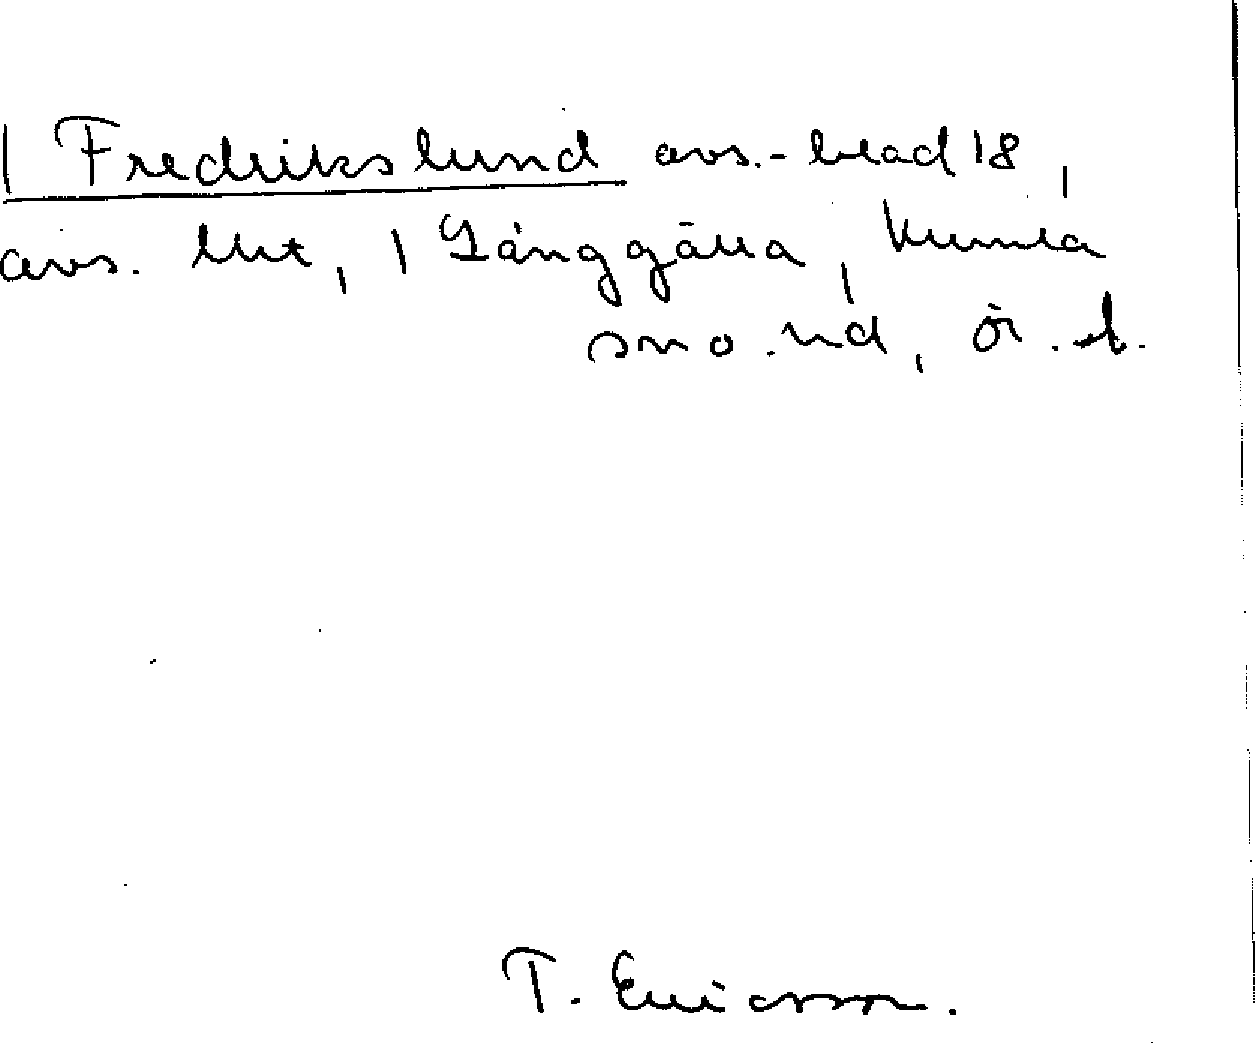 1 Fredrikslund avs.-blad 18,
avs. litt, 1 Långgälla, Kumla
sno. hd, Ör. l.
T. Ericsson.